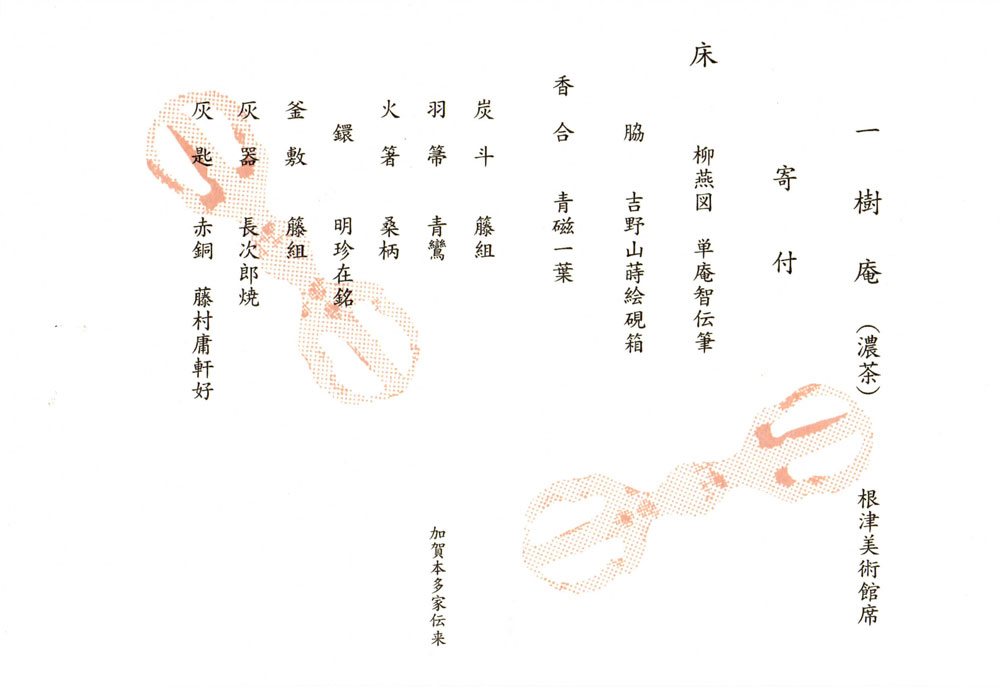 一樹庵（濃茶）　根津美術館席
寄付
床　柳燕図　単庵智伝筆
脇　吉野山蒔絵硯箱
香合　青磁一葉
炭斗　籐組
羽箒　青鸞　加賀本多家伝来
火箸　桑柄
鐶　明珍在銘
釜敷　籐組
灰器　長次郎焼
灰匙　赤銅　藤村庸軒好